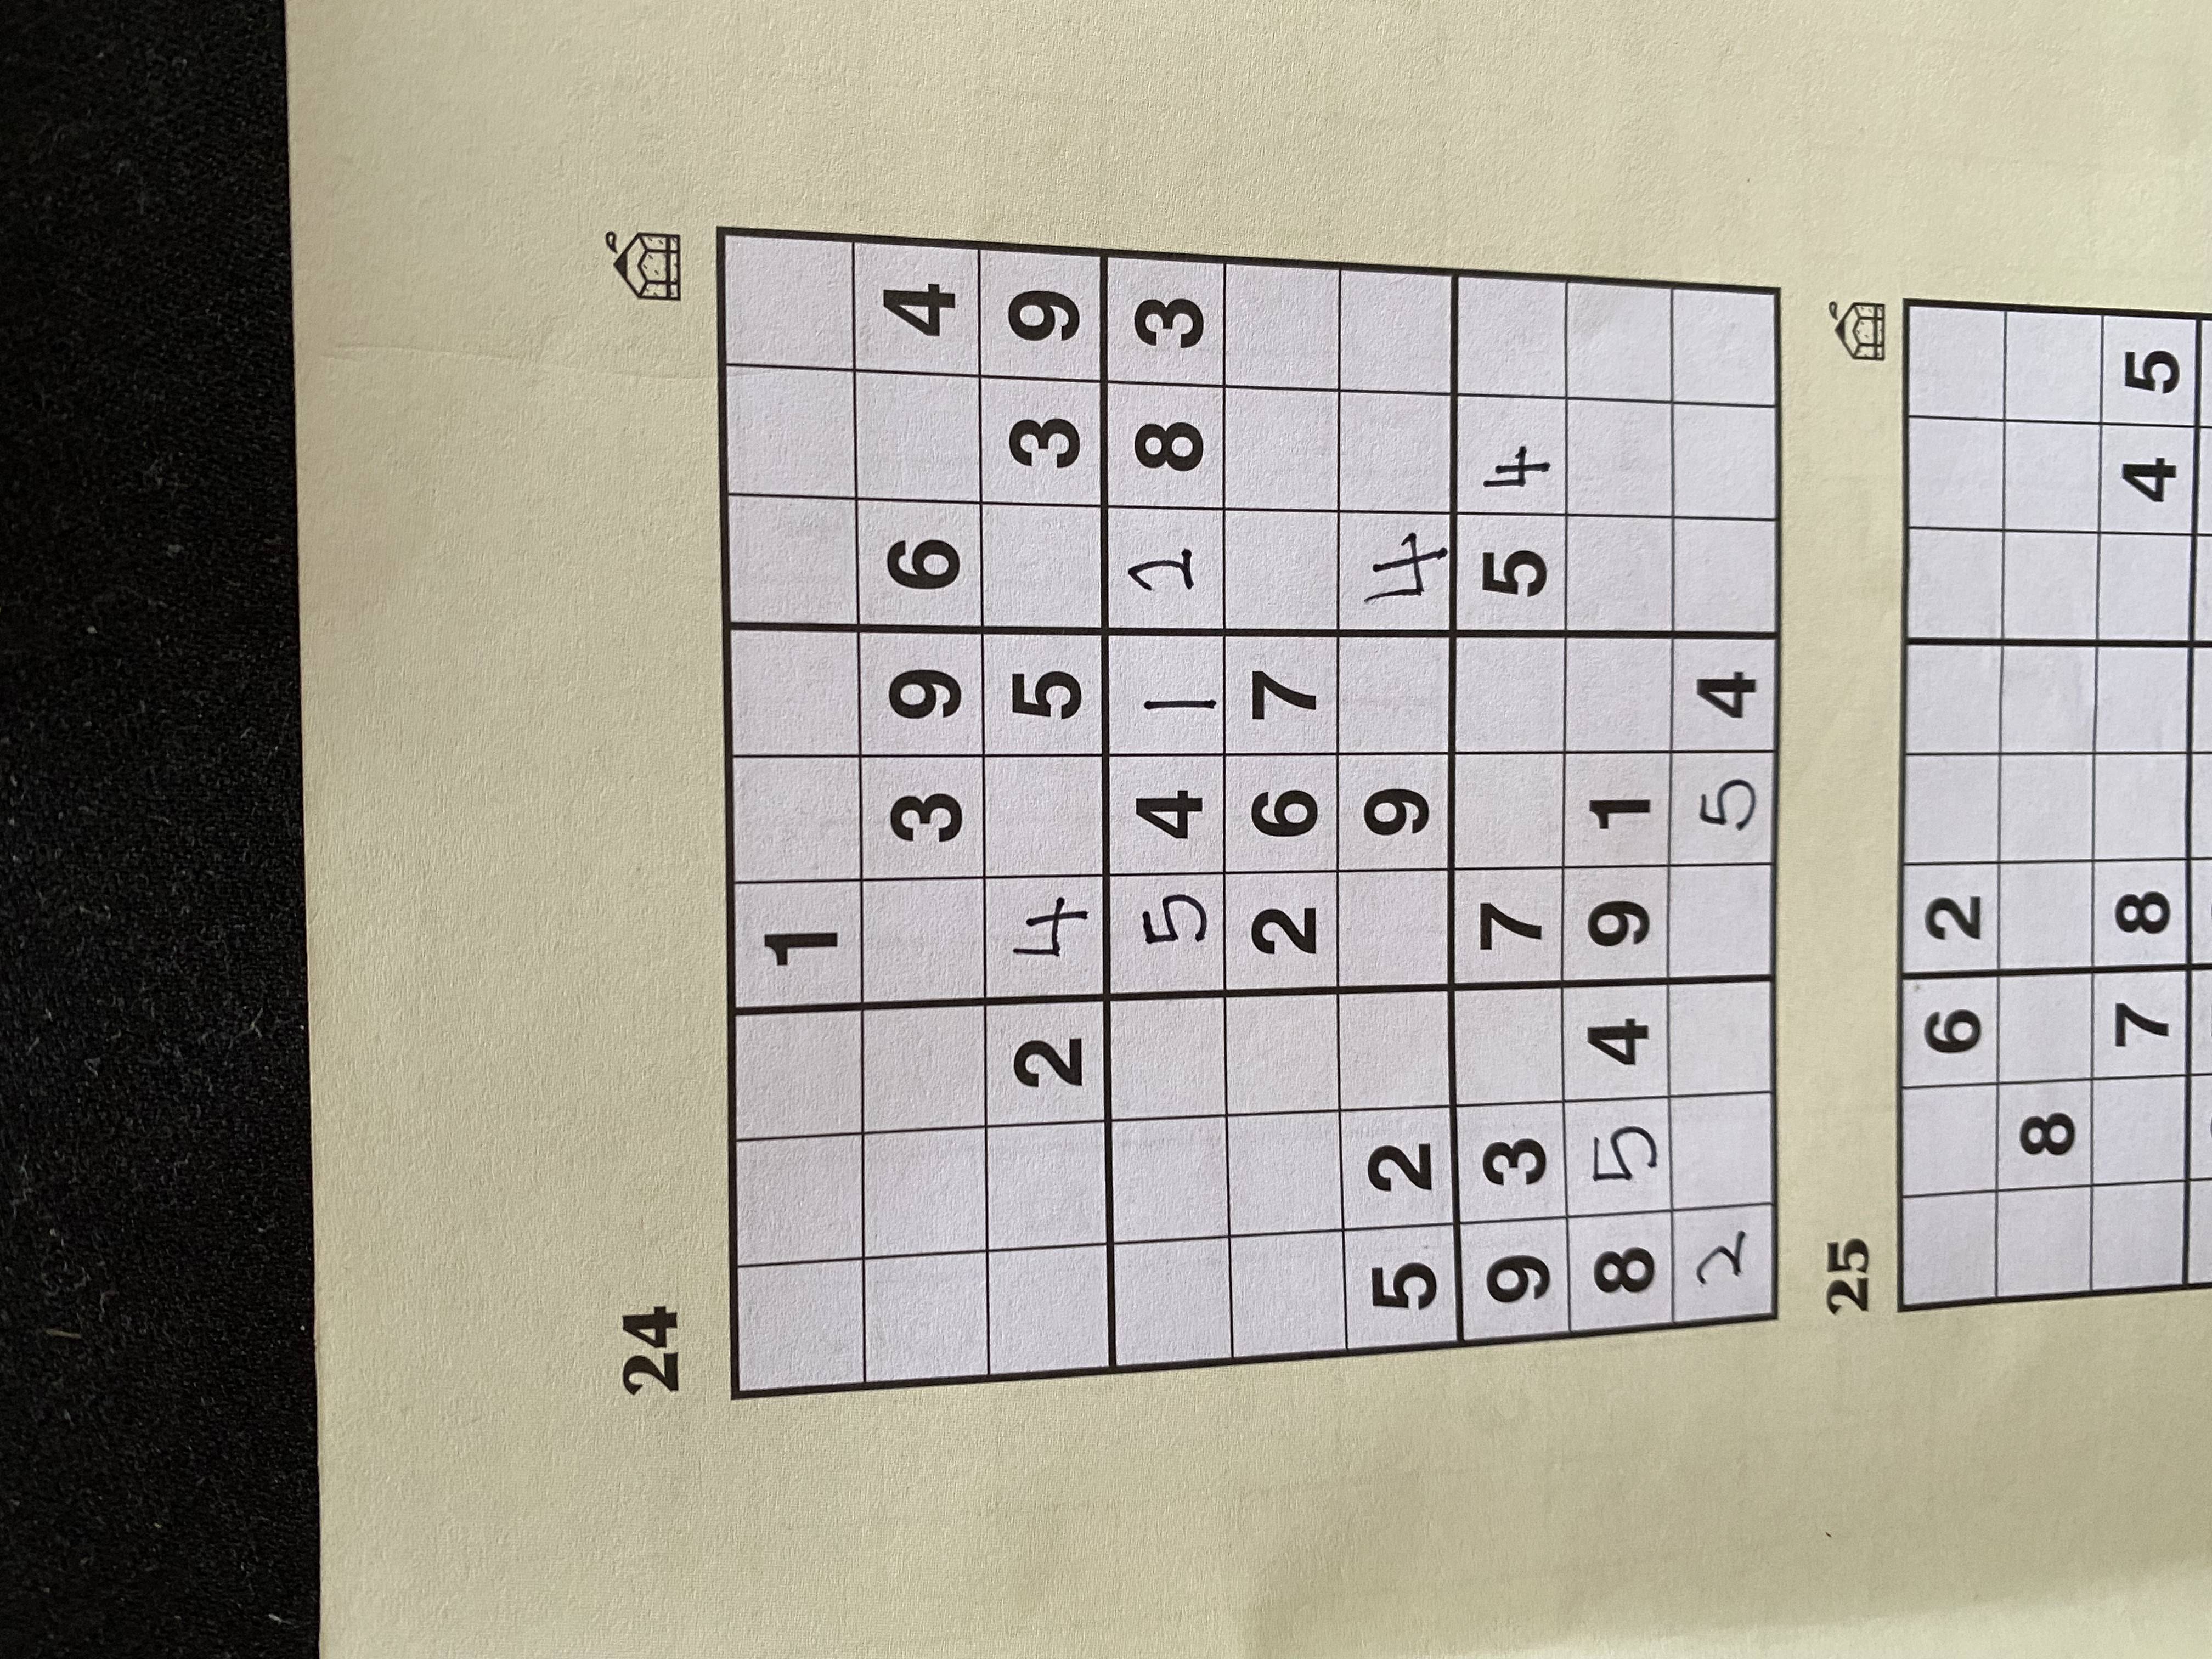 24
1
3 9 6 4
2 4 5 3 9
5 4 1 2 8 3
2 6 7
5 2 9 4
9 3 7 5 4
8 5 4 9 1
2 5 4
25
6 2
8
7 8 4 5